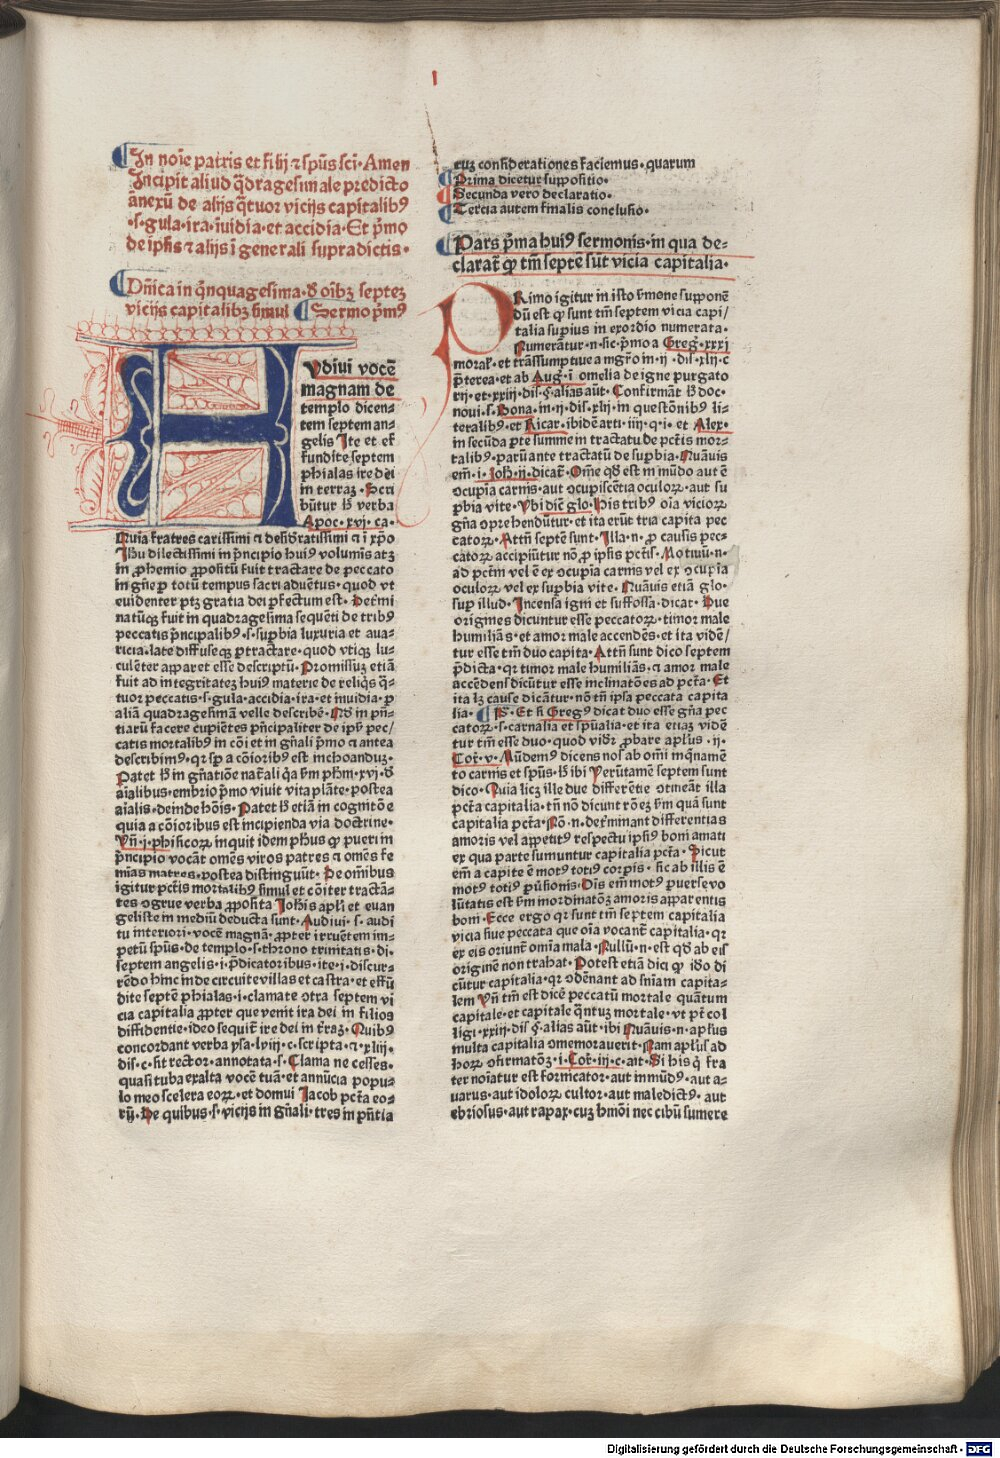 I
In noīe patris et filij ⁊ spūs sci· Amen
Incipit aliud qdragesimale predicto
ānexū de alijs qtuor vicijs capitalibꝰ
·s·gula·ira·īuidia·et accidia·Et pmo
de ipsis ⁊ alijs ī generali supradictis·
Dñica in qnquagesima·d oībꝫ septeꝫ
vicijs capitalibꝫ simul Sermo pmꝰ
AVdiui vocē
magnam de
templo dicen⸗
tem septem an⸗
gelis Ite et ef
fundite septem
phialas ire dei
in terraꝫ· Scri
būtur hec verba
Apoc·xvj·ca·
Quia fratres carissimi ⁊ desideratissimi ⁊ ī xpo
Ihu dilectissimi in pncipio huiꝰ volumīs atꝫ
in prohemio propositū fuit tractare de peccato
in gn̄e per totū tempus sacri aduentus·quod vt
euidenter ptꝫ gratia dei pfectum est· Determi
natūqꝫ fuit in quadragesima sequēti de tribꝰ
peccatis pncipalibꝰ·s·supbia luxuria et aua⸗
ricia·late diffuseqꝫ ptractare·quod vtiqꝫ lu⸗
culēter apparet esse descriptū·Promissuꝫ etiā
fuit ad integritateꝫ huiꝰ materie de reliqs q⸗
tuor peccatis·s·gula·accidia·ira·et inuidia·p
aliā quadragesimā velle describe· Nūc in pn̄⸗
tiarū facere cupiētes pncipaliter de ipsis pec/
catis mortalibꝰ in cōi et in gn̄ali pmo ⁊ antea
describimꝰ·qr semp a cōioribus est inchoanduꝫ·
Patet hoc in gn̄atiōne naturali qa scdm phm·xvj·d
aīalibus·embrio pmo viuit vita plāte·postea
aīalis·deinde hoīs·Patet hoc etiā in cognitōe
quia a cōioribus est incipienda via doctrine·
Vn̄·j·phisicoꝝ inquit idem phus q pueri in
pncipio vocāt omēs viros patres ⁊ omēs fe
mīas matres·postea distinguūt· De omībus
igitur pctīs mortalibꝰ simul et cōiter tractā⸗
tes ogrue verba proposita Johīs apli et euan
geliste in mediū deducta sunt·Audiui·s·audi
tu interiori·vocē magnā·propter irruētem im⸗
petū spūs·de templo·s·throno trinitatis·di⸗
septem angelis·i·pdicatoribus·ite·i·discur⸗
rēdo hinc inde circuite villas et castra·et effū
dite septē phialas·i·clamate otra septem vi
cia capitalia propter que venit ira dei in filios
diffidentie·ideo sequit ire dei in trāꝫ·Quibꝰ
concordant verba ysa·lviij·c·scripta·⁊·xliij·
dis·c·sit rector·annotata·s·Clama ne cesses·
quasi tuba exalta vocē tuā·et annūcia popu⸗
lo meo scelera eoꝝ·et domui Jacob pctā eo⸗
rū·De quibus·s·vicijs in gn̄ali·tres in pn̄tia
ruꝫ considerationes faciemus·quarum
Prima dicetur suppositio·
Secunda vero declaratio·
Tercia autem finalis conclusio·
Pars pma huiꝰ sermonis·in qua de⸗
clarat q tm̄ septē sūt vicia capitalia·
PRimo igitur in isto sermone supponē
dū est q sunt tm̄ septem vicia capi/
talia supius in exordio numerata·
Numerātur·n·sic·pmo a Greg·xxxj
moral·et trāssumptiue a mgro in·ij·dis·xlij·c
pterea·et ab Aug·i omelia de igne purgato
rij·et·xxiij·dis·ς·alias aūt·Confirmāt hoc doc⸗
noui·s·Bona·in·ij·dis·xlij·in questōnibꝰ li⸗
teralibꝰ·et Ricar·ibidē arti·iiij·q·i·et Alex·
in secūda pte summe in tractatu de pctīs mor⸗
talibꝰ·parū ante tractatū de supbia·Quāuis
em̄·i·Joh·ij·dicat·Ome qd est in mūdo aut ē
ocupīa carnis·aut ocupiscētia oculoꝝ·aut su
pbia vite·Vbi dic glo·His tribꝰ oīa vicioꝝ
gn̄a oprehendūtur·et ita erūt tria capita pec
catoꝝ·Attn̄ septē sunt·Illa·n·pro causis pec⸗
catoꝝ accipiūtur nō pro ipsis pctīs·Motiuū·n·
ad pctm vel ē ex ocupīa carnis vel ex ocupīa
oculoꝝ vel ex supbia vite·Quāuis etiā glo·
sup illud·Incensa igni et suffossa·dicat·Due
origines dicuntur esse peccatoꝝ·timor male
humiliās·et amor male accendēs·et ita vidē/
tur esse tm̄ duo capita·Attn̄ sunt dico septem
pdicta·qr timor male humiliās·⁊ amor male
accēdens dicūtur esse inclinatōes ad pctā·Et
ita lꝫ cause dicātur·nō tn̄ ipsa peccata capita
lia· Sꝫ·Et si Gregꝰ dicat duo esse gn̄a pec
catoꝝ·s·carnalia et spūalia·et ita etiaꝫ vide
tur tm̄ esse duo·quod videtur probare aplus·ij·
Cor·v·Mūdemꝰ dicens nos ab omi inqnamē
to carnis et spūs·hoc ibi Verūtamē septem sunt
dico·Quia licꝫ ille due differētie otineāt illa
pctā capitalia·tn̄ nō dicunt rōeꝫ scdm quā sunt
capitalia pctā·Nō·n·determinant differentias
amoris vel appetitꝰ respectu ipsiꝰ boni amati
ex qua parte sumuntur capitalia pctā·Sicut
em̄ a capite ē motꝰ totiꝰ corpis·sic ab illis ē
motꝰ totiꝰ puersionis·Oīs em̄ motꝰ peruerse vo
lūtatis est scdm inordinatōꝫ amoris apparentis
boni·Ecce ergo qr sunt tm̄ septem capitalia
vicia siue peccata que oīa vocant capitalia·qr
ex eis oriunt omīa mala·Nullū·n·est qd ab eis
originē non trahat·Potest etiā dici q ideo di
cūtur capitalia·qr odēnant ad sniam capita⸗
lem Vn̄ tm̄ est dicē peccatū mortale quātum
capitale·et capitale qntuꝫ mortale·vt pt col
ligi·xxiij·dis·ς·alias aūt·ibi Quāuis·n·aplus
multa capitalia omemorauerit·Nam aplus ad
hoꝝ ofirmatōꝫ·i·Cor·iij·c·ait·Si his q fra
ter noīatur est fornicator·aut inmūdꝰ·aut a⸗
uarus·aut idoloꝝ cultor·aut maledictꝰ·aut
ebriosus·aut rapax·cuꝫ hmōi nec cibū sumere
Digitalisierung gefördert durch die Deutsche Forschungsgemeinschaft - DFG